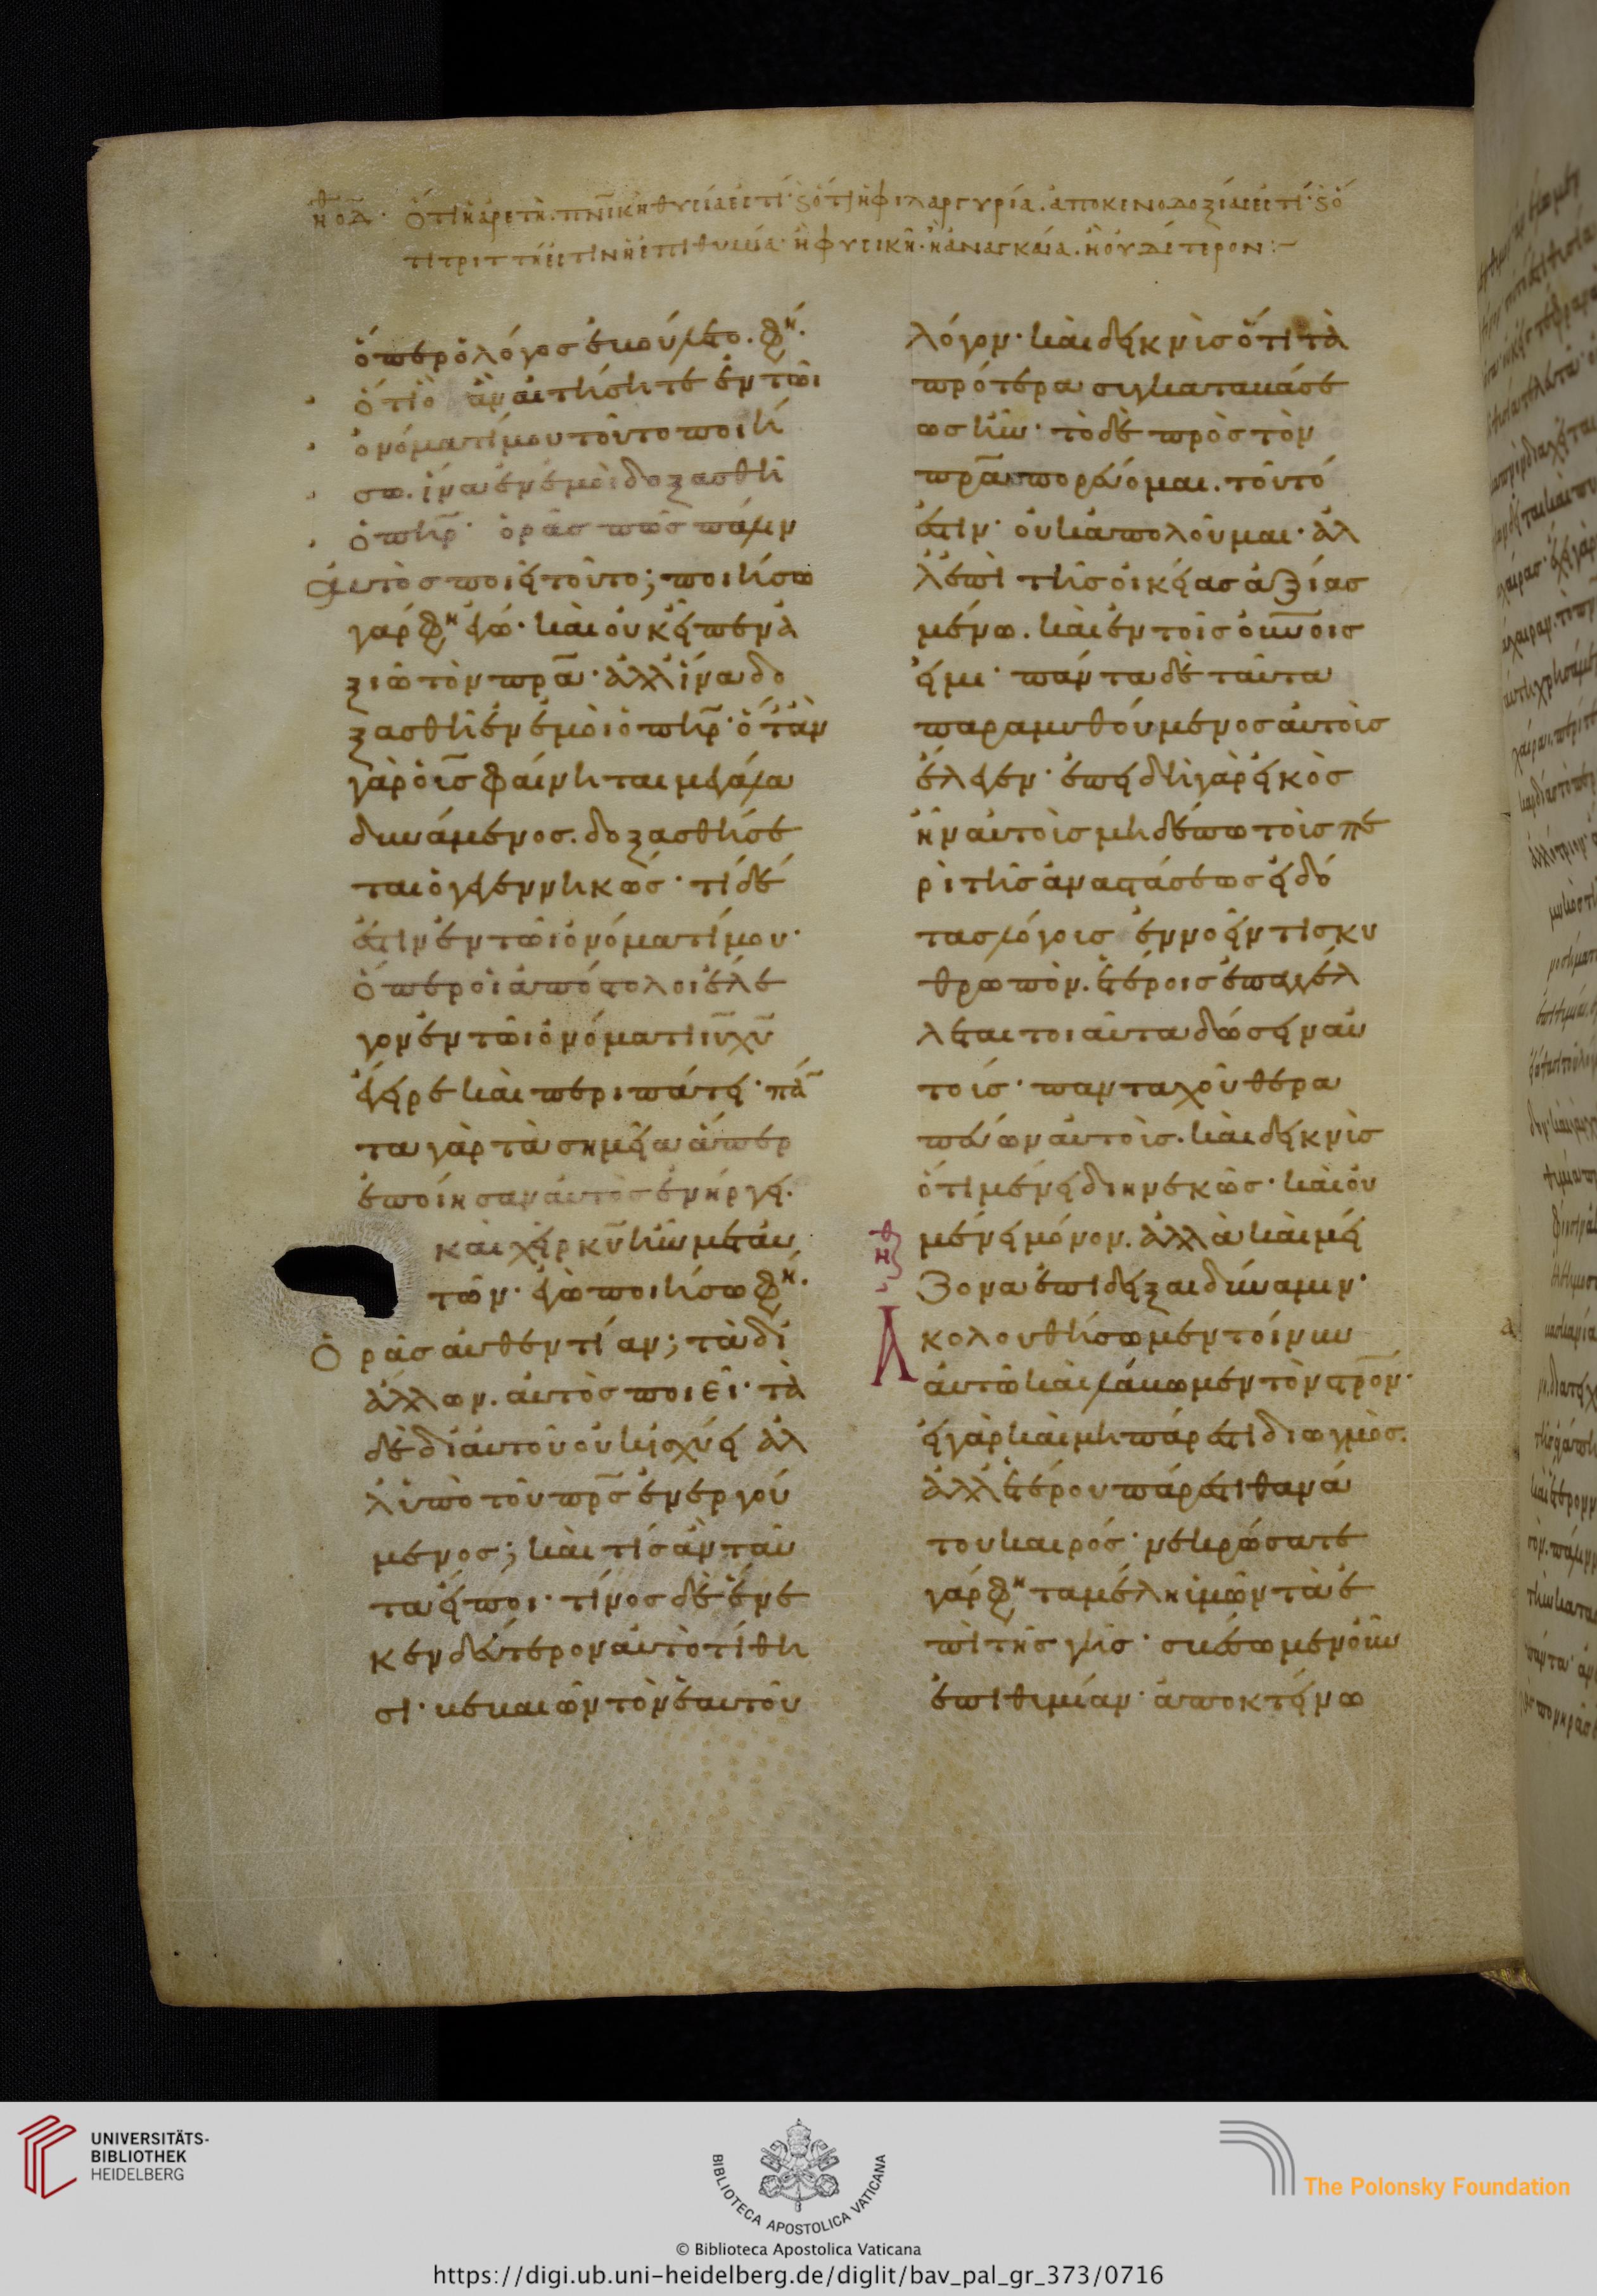 ἠθ ο̅δ̅· Ὅτι ἡ ἀρετὴ. πν̅ικὴ θυσία ἐστί· ϛ ὅτι ἡ φιλαργυρία. ἀπο κενοδοξίας ἐστί· ϛ ὅ
τι τριττή ἐστιν ἡ ἐπιθυμία· ἢ φυσικὴ· ἢ ἀναγκαία. ἢ οὐδέτερον:~
ὅπερ ὁ λόγος ἐκούετο. φη·
ὅτι ὃ ἂν αἰτήσητε ἐν τῶι
ὀνόματί μου τοῦτο ποιή
σω. ἵνα ἐν ἐμοὶ δοξασθῆ
ὁ πη̅ρ· ὁρᾶς πῶς πάλιν
αὐτὸς ποιεῖ τοῦτο; ποιήσω
γάρ φη ἐγώ· καὶ οὐκ εἶπεν ἀ
ξιῶ τὸν πρ̅α· ἀλλ ἵνα δο
ξασθῆ ἐν ἐμοὶ ὁ πη̅ρ· ὅταν
γὰρ ὁ υἱ̅ς φαίνηται μεγάλα
δυνάμενος. δοξασθήσε
ται ὁ γεγεννηκώς· τί δέ
ἐστιν ἐν τῶι ὀνόματί μου·
ὅπερ οἱ ἀπόστολοι ἔλε
γον ἐν τῶι ὀνόματι ι̅υ̅ χ̅υ̅
ἔγειρε καὶ περιπάτει· πά̅
τα γὰρ τὰ σημεῖα ἅπερ
ἐποίησαν αὐτὸς ἐνήργει.
καὶ χεὶρ κ̅υ̅ ἦν μετ αὐ
τῶν· ἐγὼ ποιήσω φη·
Ὁρᾶς αὐθεντίαν; τὰ δι
ἄλλων. αὐτὸς ποιεῖ· τὰ
δὲ δι αὐτοῦ οὐκ ἰσχύει ἀλ
λ ὑπὸ τοῦ πρ̅ς ἐνεργού
μενος; καὶ τίς ἂν ταῦ
τα εἴποι· τίνος δὲ ἕνε
κεν δεύτερον αὐτὸ τίθη
σι· βεβαιῶν τὸν ἑαυτοῦ
λόγον· καὶ δεικνὺς ὅτι τὰ
πρότερα συγκαταβάσε
ως ἦν· τὸ δὲ πρὸς τὸν
πρ̅α πορεύομαι. τοῦτό
ἐστιν· οὐκ ἀπολοῦμαι· ἀλ
λ ἐπὶ τῆς οἰκείας ἀξίας
μένω. καὶ ἐν τοῖς οὐν̅οις
εἰμι· πάντα δὲ ταῦτα
παραμυθούμενος αὐτοὺς
ἔλεγεν· ἐπειδὴ γὰρ εἰκὸς
ἦν αὐτοὺς μηδέπω τοὺς πε
ρὶ τῆς ἀναστάσεως εἰδό
τας λόγους ἐννοεῖν τι σκυ
θρωπὸν. ἑτέροις ἐπαγγέλ
λεται τοιαῦτα δώσειν αὐ
τοῖς· πανταχοῦ θερα
πεύων αὐτοὺς. καὶ δεικνὺς
ὅτι μένει διηνεκῶς· καὶ οὐ
ἠθ μένει μόνον. ἀλλὰ καὶ μεί
ζονα ἐπιδείξαι δύναμιν·
Ἀκολουθήσωμεν τοίνυν
αὐτῶ καὶ λάβωμεν τὸν στ̅ρ̅ον·
εἰ γὰρ καὶ μὴ πάρεστι διωγμὸς.
ἀλλ ἑτέρου πάρεστι θανά
του καιρός· νεκρώσατε
γάρ φη τα μέλη ὑμῶν τὰ ἐ
πὶ τῆς γῆς· σβέσωμεν οὖν
ἐπιθυμίαν· ἀποκτείνω
UNIVERSITÄTS-
BIBLIOTHEK
HEIDELBERG
BIBLIOTECA APOSTOLICA VATICANA
The Polonsky Foundation
© Biblioteca Apostolica Vaticana
https://digi.ub.uni-heidelberg.de/diglit/bav_pal_gr_373/0716